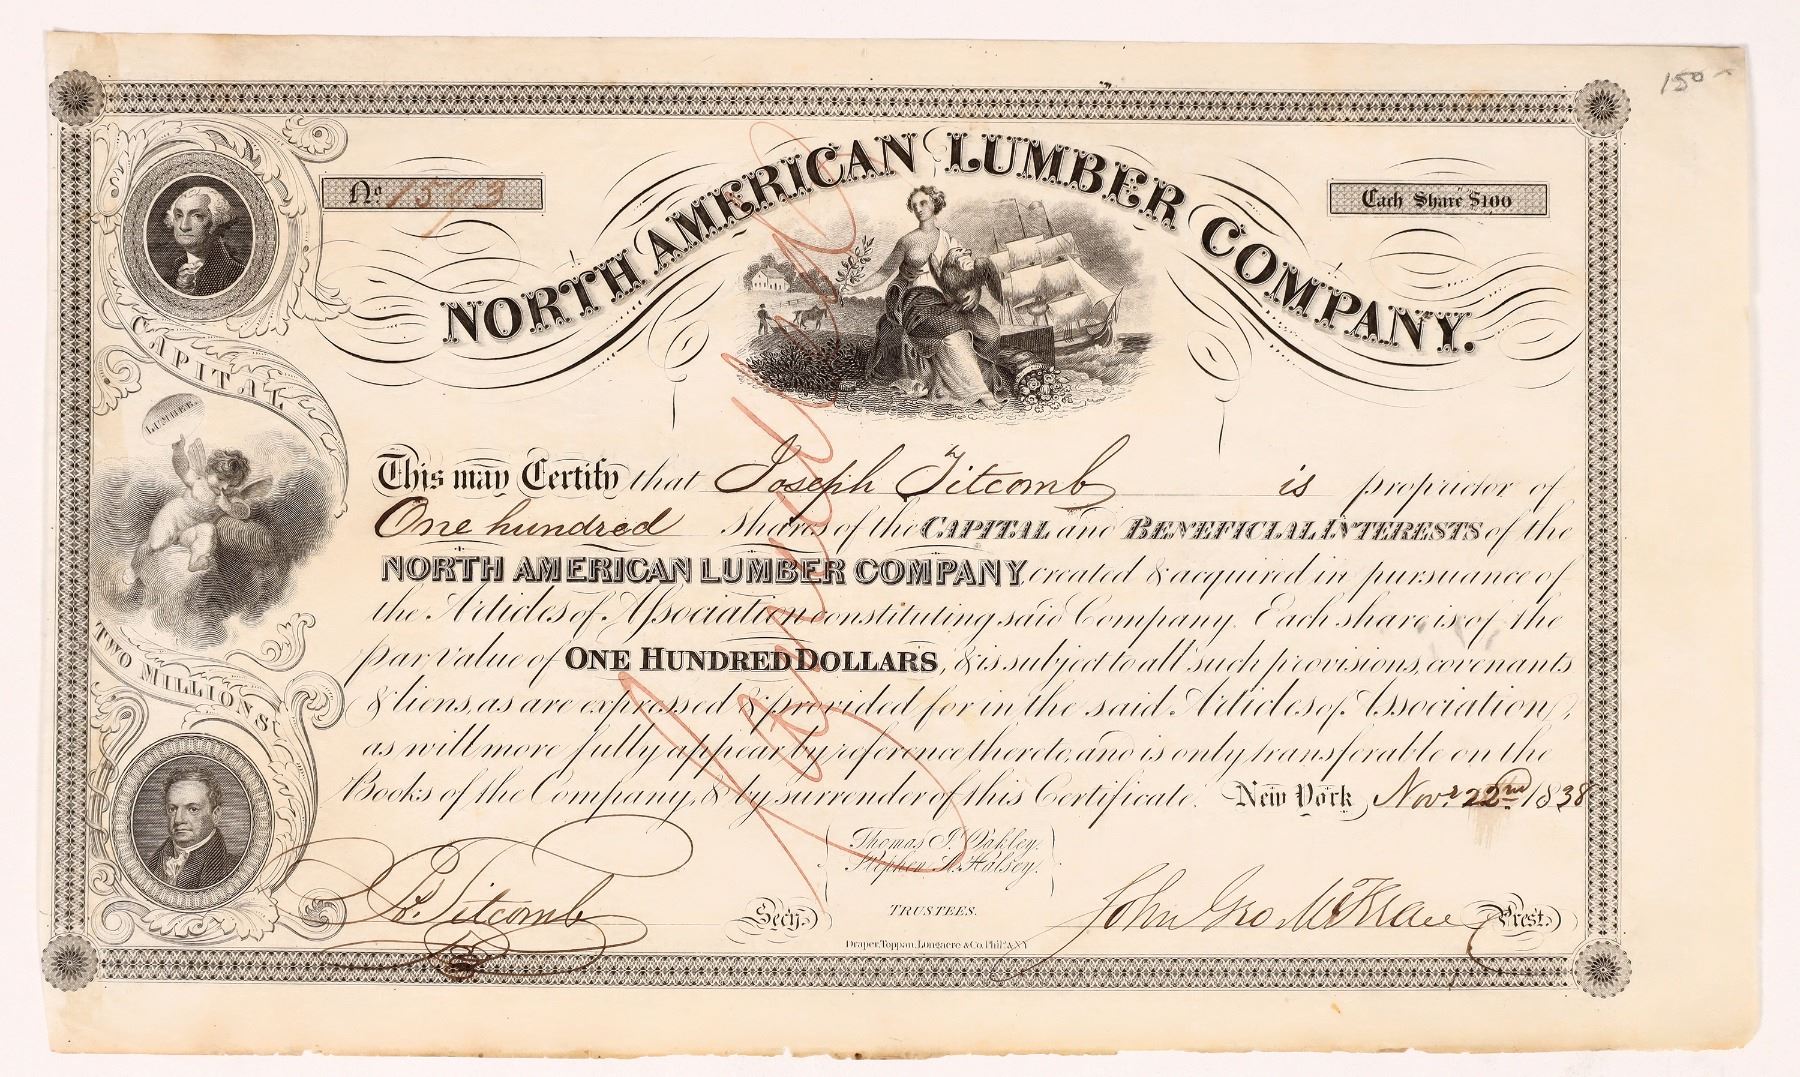 150
No 1573
Each Share $100
NORTH AMERICAN LUMBER COMPANY.
CAPITAL
LUMBER
TWO MILLIONS
This may Certify that Joseph Titcomb is proprietor of
One hundred shares of the CAPITAL and BENEFICIAL INTERESTS of the
NORTH AMERICAN LUMBER COMPANY, created & acquired in pursuance of
the Articles of Association constituting said Company. Each share is of the
par value of ONE HUNDRED DOLLARS, & is subject to all such provisions, covenants
& liens, as are expressed & provided for in the said Articles of Association,
as will more fully appear by reference thereto, and is only transferable on the
Books of the Company, & by surrender of this Certificate. New York Novr 22nd 1838
Thomas J. Oakley.
Stephen A. Halsey.
TRUSTEES.
Titcomb Secy.
John Geo Prest.
Draper, Toppan, Longacre & Co. Phila. & N.Y.
Transferred